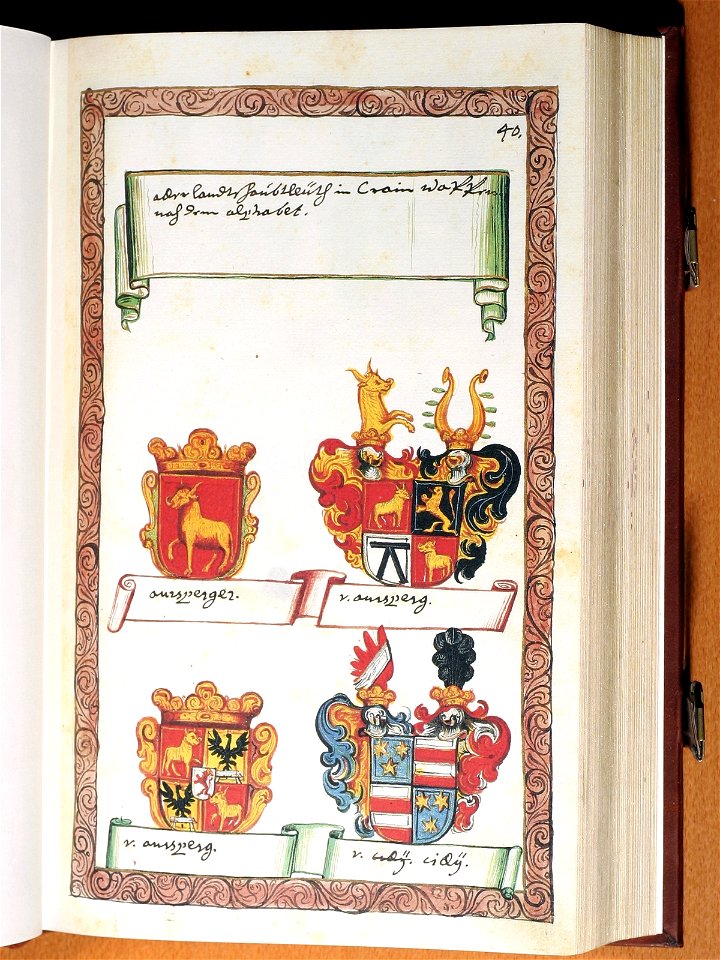 40.
aller landtshaubtleüth in Crain Wappen
nach dem alphabet.
aursperger.
v. aursperg.
v. aursperg.
v. cilÿ.